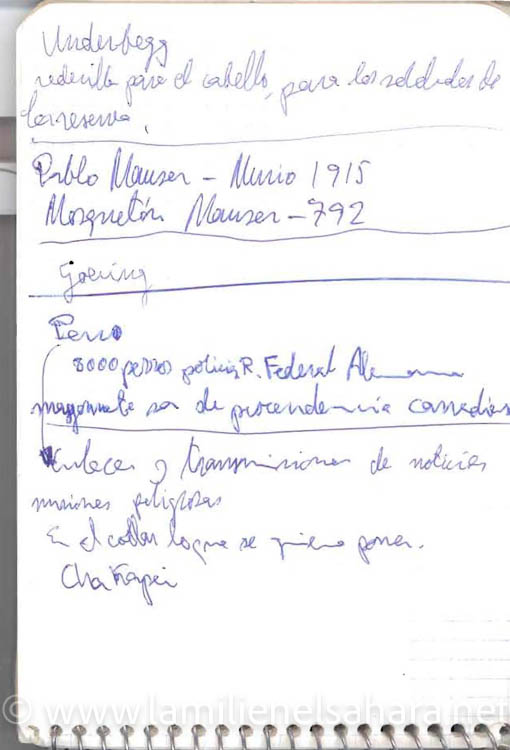 Underbegg
redecilla para el cabello, para los soldados de
la reserva.
Pablo Mauser - Murio 1915
Mosquetón Mauser - 792
Goering
Perro
8000 perros policia R. Federal Alemana
mayormente son de procendencia canadiense
Enlaces y transmisiones de noticias
misiones peligrosas
En el collar lo que se quiera poner.
© www.lamilienelsahara.net